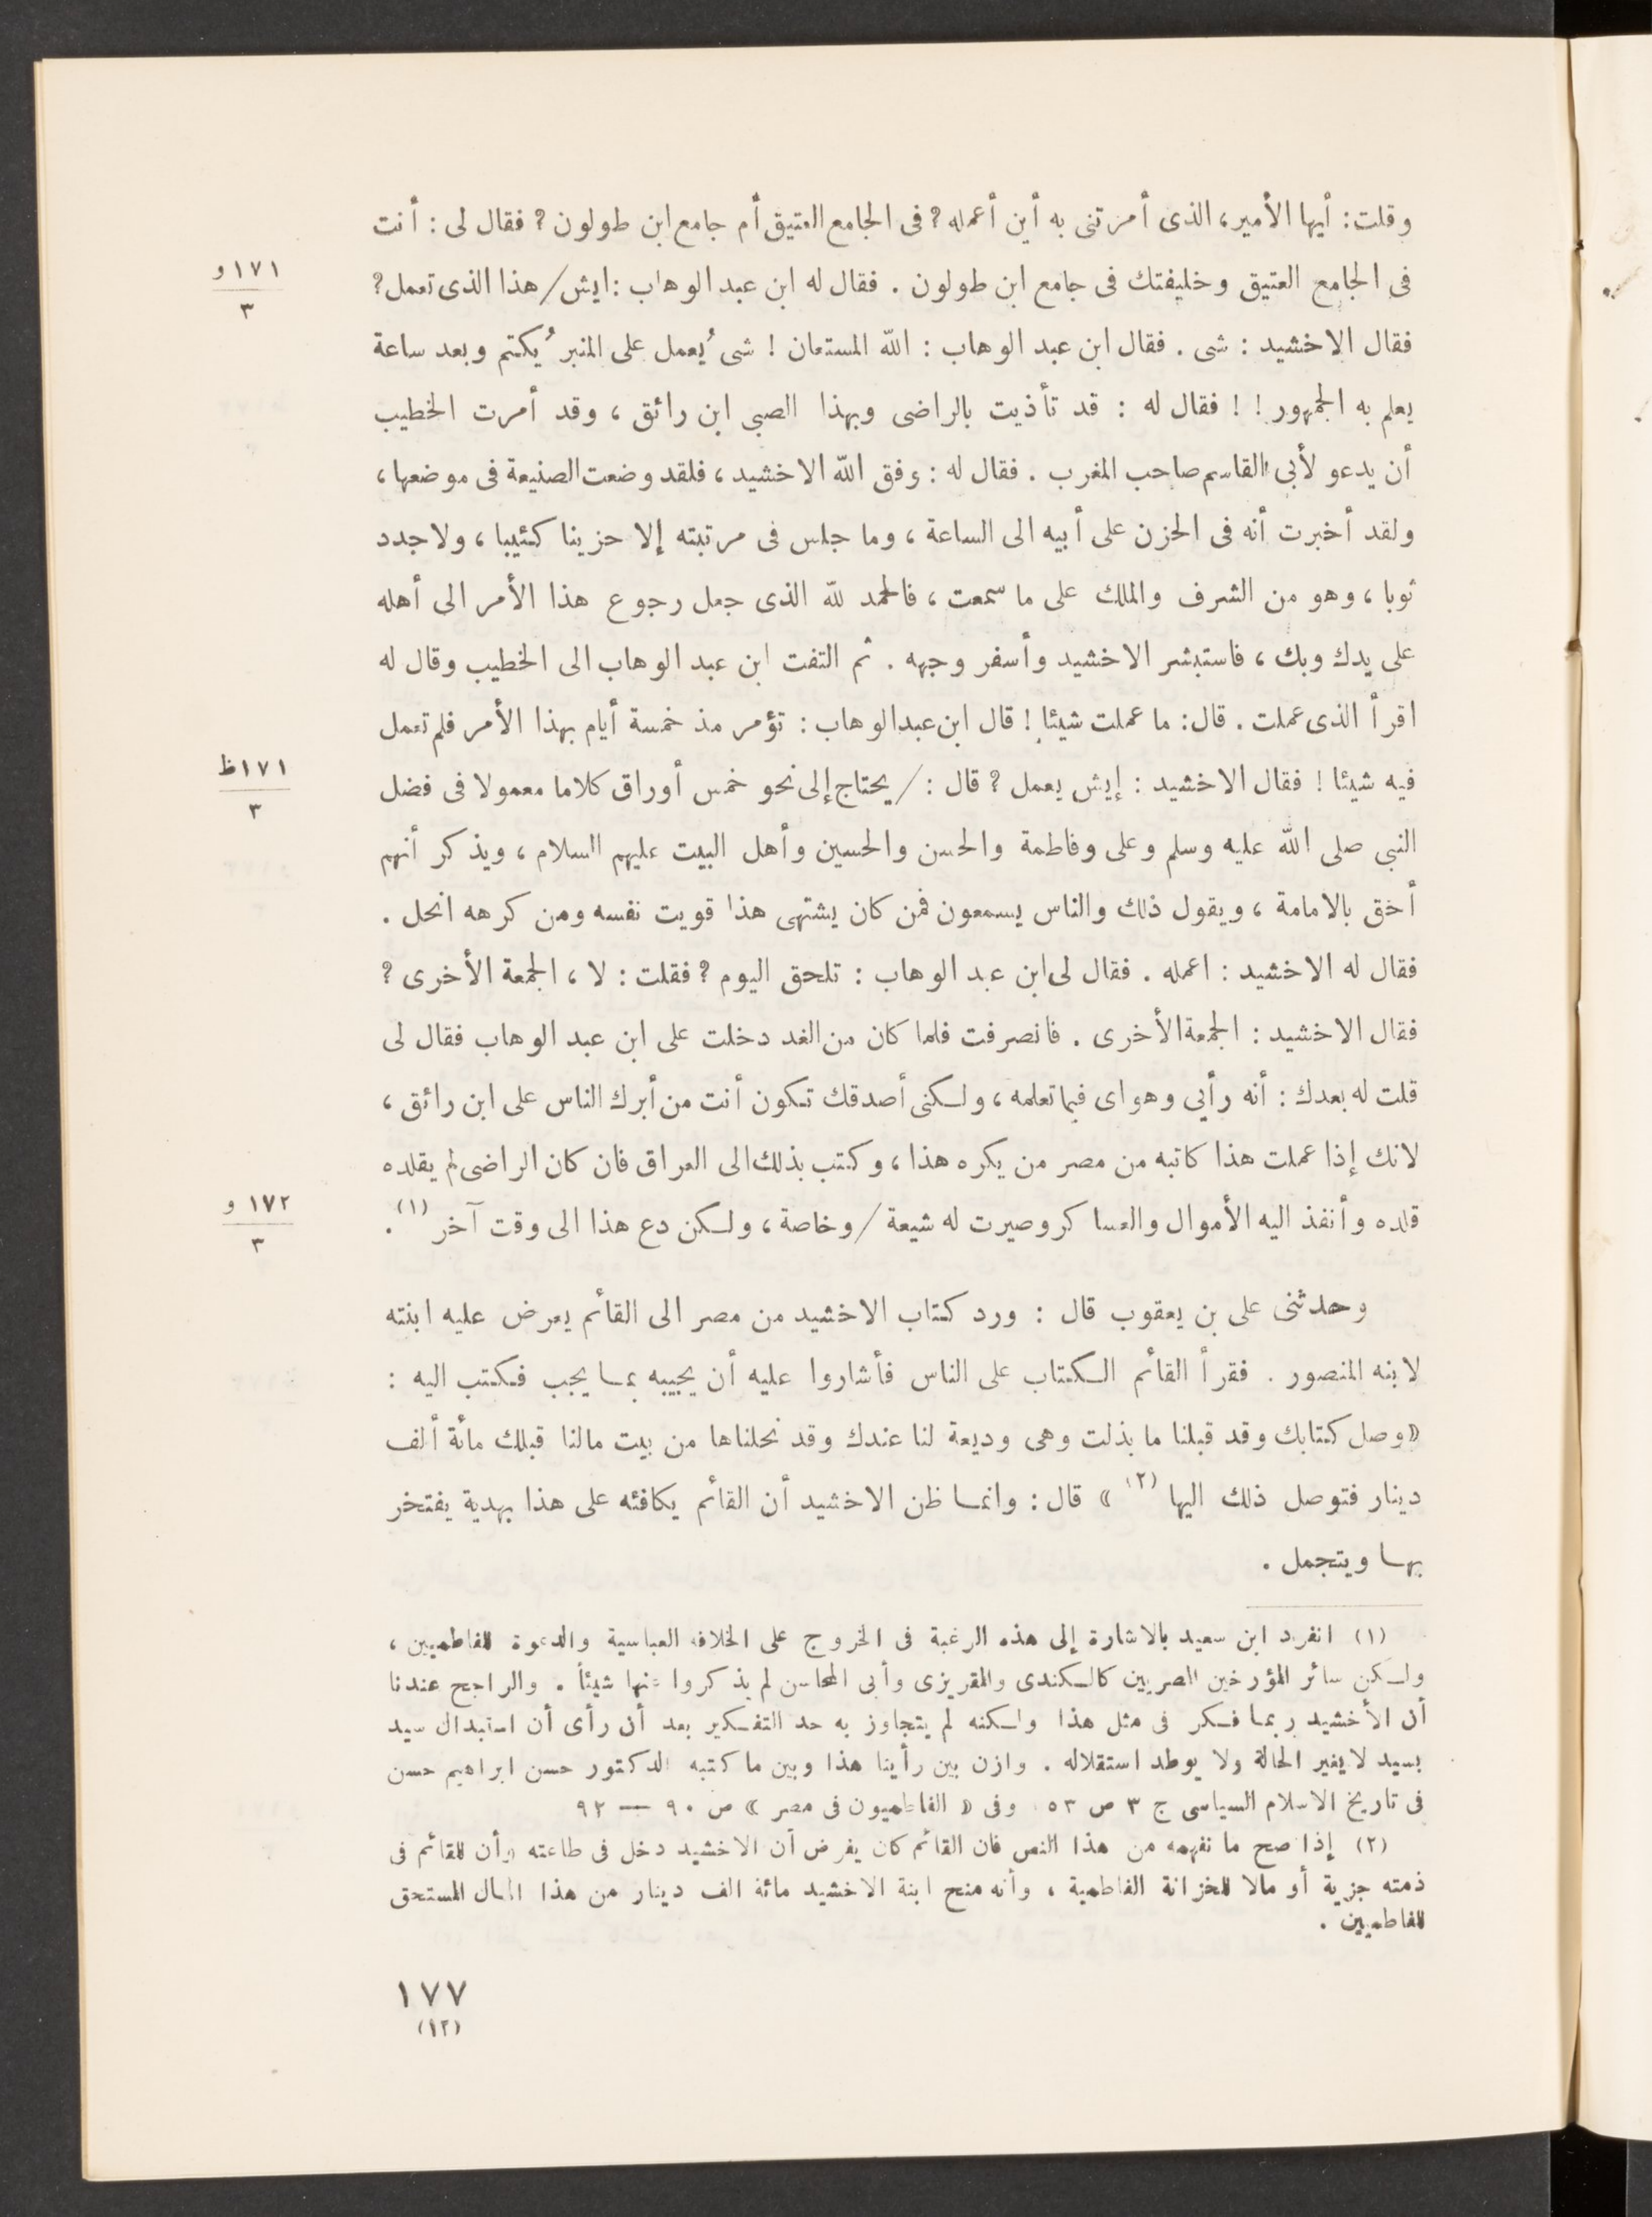 وقلت: أيها الأمير، الذى أمرتنى به أين أعمله؟ فى الجامع العتيق أم جامع ابن طولون؟ فقال لى: أنت
فى الجامع العتيق وخليفتك فى جامع ابن طولون. فقال له ابن عبد الوهاب: ايش/هذا الذى تعمل؟
١٧١ و
٣
فقال الاخشيد: شى. فقال ابن عبد الوهاب: الله المستعان! شى ُيعمل على المنبر ُيكتم وبعد ساعة
يعلم به الجمهور!! فقال له: قد تأذيت بالراضى وبهذا الصبي ابن رائق، وقد أمرت الخطيب
أن يدعو لأبى القاسم صاحب المغرب. فقال له: وفق الله الاخشيد، فلقد وضعت الصنيعة فى موضعها،
ولقد أخبرت أنه فى الحزن على أبيه الى الساعة، وما جلس فى مرتبته إلا حزينا كئيبا، ولا جدد
ثوبا، وهو من الشرف والملك على ما سمعت، فالحمد لله الذى جعل رجوع هذا الأمر الى أهله
على يدك وبك، فاستبشر الاخشيد وأسفر وجهه. ثم التفت ابن عبد الوهاب الى الخطيب وقال له
اقرأ الذى عملت. قال: ما عملت شيئا! قال ابن عبد الوهاب: تؤمر مذ خمسة أيام بهذا الأمر فلم تعمل
فيه شيئا! فقال الاخشيد: إيش يعمل؟ قال: /يحتاج إلى نحو خمس أوراق كلاما معمولا فى فضل
١٧١ظ
٣
النبى صلى الله عليه وسلم وعلى وفاطمة والحسن والحسين وأهل البيت عليهم السلام، ويذكر أنهم
أحق بالامامة، ويقول ذلك والناس يسمعون فمن كان يشتهى هذا قويت نفسه ومن كرهه انحل.
فقال له الاخشيد: اعمله. فقال لى ابن عبد الوهاب: تلحق اليوم؟ فقلت: لا، الجمعة الأخرى؟
فقال الاخشيد: الجمعة الأخرى. فانصرفت فلما كان من الغد دخلت على ابن عبد الوهاب فقال لى
قلت له بعدك: أنه رأيي وهواى فيما تعلمه، ولكنى أصدقك تكون أنت من أبرك الناس على ابن رائق،
لانك إذا عملت هذا كاتبه من مصر من يكره هذا، وكتب بذلك الى العراق فان كان الراضى لم يقلده
قلده وأنفذ اليه الأموال والعساكر وصيرت له شيعة/وخاصة، ولكن دع هذا الى وقت آخر (١).
١٧٢ و
٣
وحدثنى على بن يعقوب قال: ورد كتاب الاخشيد من مصر الى القائم يعرض عليه ابنته
لابنه المنصور. فقرأ القائم الكتاب على الناس فأشاروا عليه أن يجيبه بما يجب فكتب اليه:
«وصل كتابك وقد قبلنا ما بذلت وهى وديعة لنا عندك وقد نحلناها من بيت مالنا قبلك مائة ألف
دينار فتوصل ذلك اليها (٢)» قال: وانما ظن الاخشيد أن القائم يكافئه على هذا بهدية يفتخر
بها ويتجمل.
(١) انفرد ابن سعيد بالاشارة إلى هذه الرغبة فى الخروج على الخلافة العباسية والدعوة للفاطميين،
ولكن سائر المؤرخين المصريين كالكندى والمقريزى وأبى المحاسن لم يذكروا عنها شيئاً. والراجح عندنا
أن الأخشيد ربما فكر فى مثل هذا ولكنه لم يتجاوز به حد التفكير بعد أن رأى أن استبدال سيد
بسيد لا يغير الحالة ولا يوطد استقلاله. وازن بين رأينا هذا وبين ما كتبه الدكتور حسن ابراهيم حسن
فى تاريخ الاسلام السياسى ج ٣ ص ٥٣ وفى «الفاطميون فى مصر» ص ٩٠ — ٩٢
(٢) إذا صح ما نفهمه من هذا النص فان القائم كان يفرض أن الاخشيد دخل فى طاعته وأن للقائم فى
ذمته جزية أو مالا للخزانة الفاطمية، وأنه منح ابنة الاخشيد مائة الف دينار من هذا المال المستحق
للفاطميين.
١٧٧
(١٢)